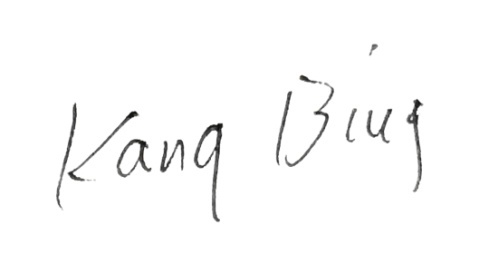 Kang Bing